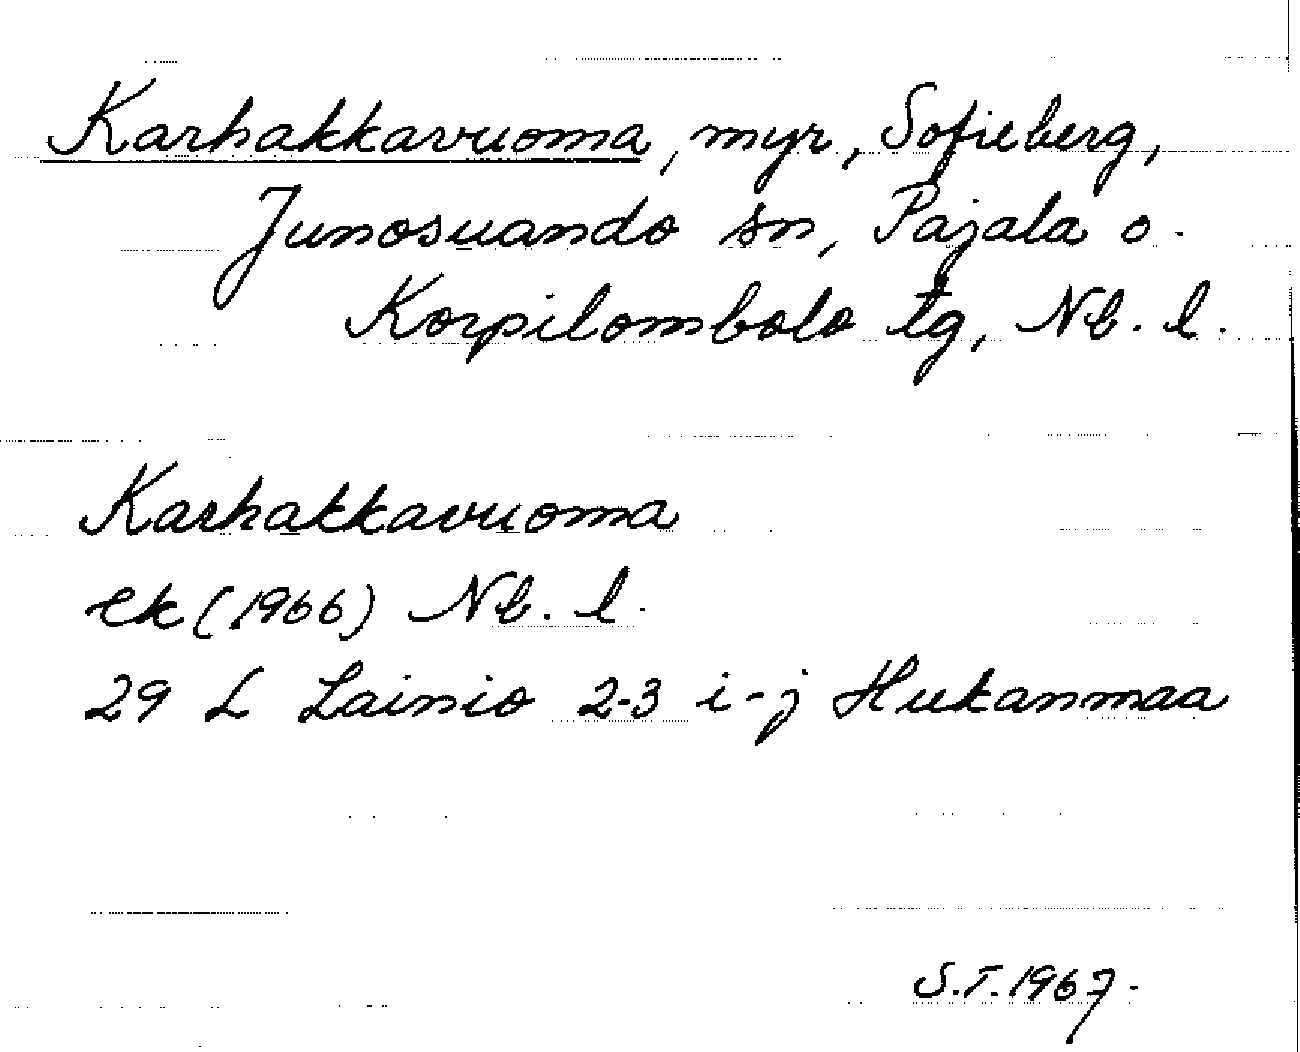 Karhakkavuoma, myr, Sofieberg,
Junosuando sn, Pajala o.
Korpilombolo tg, Nb. l.
Karhakkavuoma
ek (1966) Nb. l.
29 L Lainio 2-3 i-j Hukanmaa
S.T. 1967.